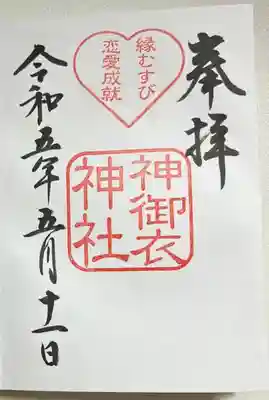 奉拝
縁むすび
恋愛成就
神御衣
神社
令和五年五月十一日